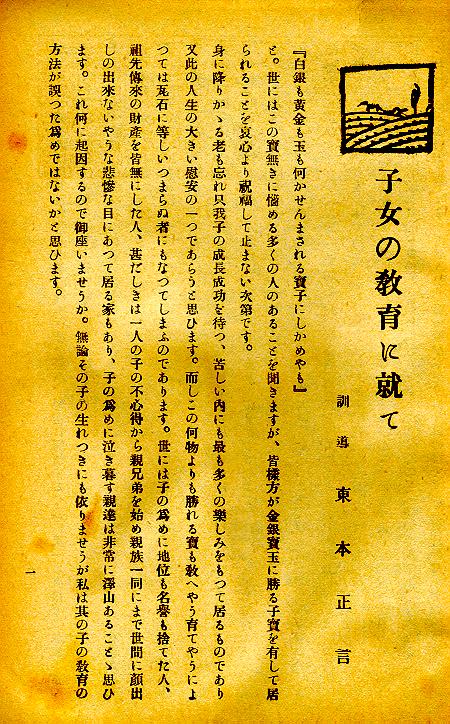 子女の敎育に就て
訓導 東本正言
『白銀も黃金も玉も何かせんまされる寶子にしかめやも』
と。世にはこの寶無きに惱める多くの人のあることを聞きますが、皆樣方が金銀寶玉に勝る子寶を有して居
られることを衷心より祝福して止まない次第です。
身に降りかゝる老も忘れ只我子の成長成功を待つ、苦しい內にも最も多くの樂しみをもつて居るものであり
又此の人生の大きい慰安の一つであらうと思ひます。而しこの何物よりも勝れる寶も敎へやう育てやうによ
つては瓦石に等しいつまらぬ者にもなつてしまふのであります。世には子の爲めに地位も名譽も捨てた人、
祖先傳來の財產を皆無にした人、甚だしきは一人の子の不心得から親兄弟を始め親族一同にまで世間に顏出
しの出來ないやうな悲慘な目にあつて居る家もあり、子の爲めに泣き暮す親達は非常に澤山あることゝ思ひ
ます。これ何に起因するので御座いませうか。無論その子の生れつきにも依りませうが私は其の子の敎育の
方法が誤つた爲めではないかと思ひます。
一